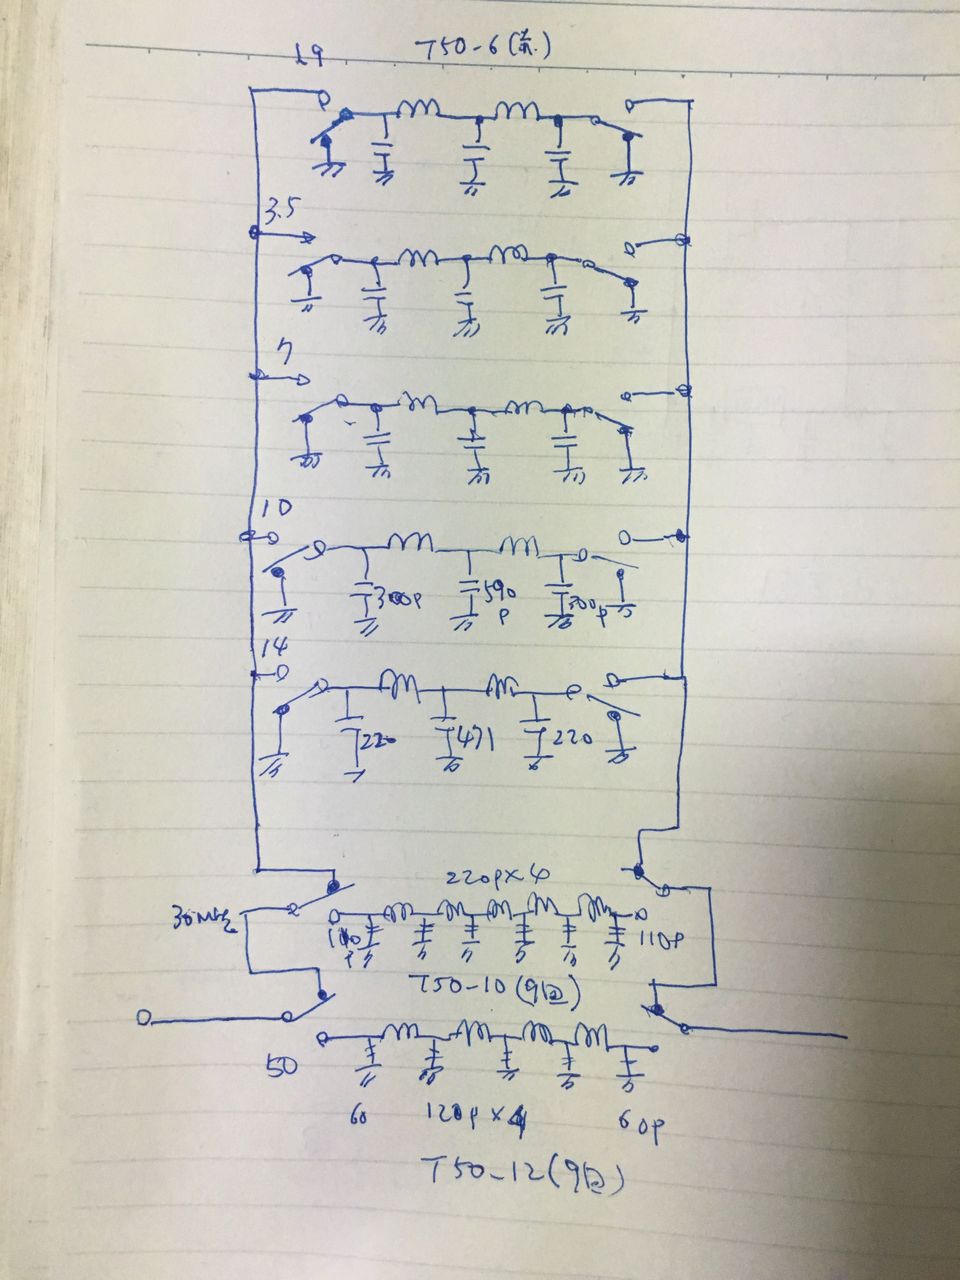 1.9 T50-6(黄)
3.5
7
10
300p 590p 300p
14
220 471 220
220p×4
30MHz
110p 110p
T50-10(9回)
50
60 120p×4 60p
T50-12(9回)